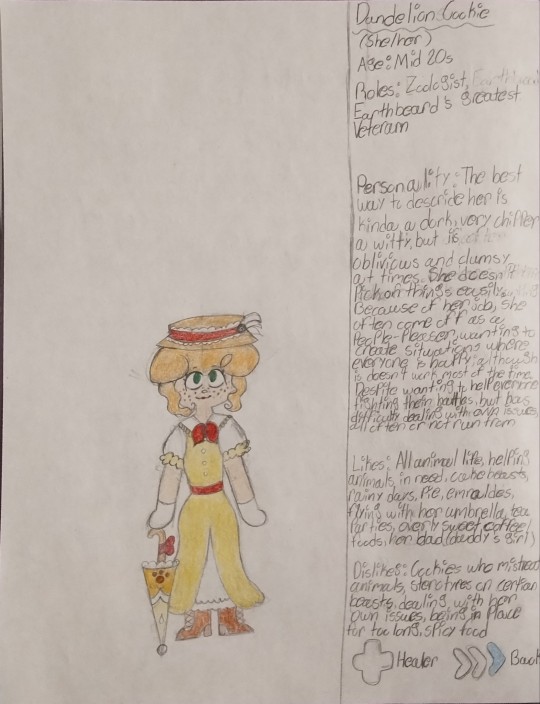 Dandelion Cookie
(She/her)
Age: Mid 20s
Roles: Zoologist,
Earthbeard's greatest
Veteram
Personality: The best
way to descride her is
kinda a dork, very chipper
a witty, but is
oblivious and clumsy
at times. She doesn't
Pick on things easily.
Because of her job, she
often come off as a
People-Pleaser, wanting to
create situations where
everyone is happy, although
is doesn't work most of the time.
Despite wanting to help everyone
fighting their battles, but has
difficulty dealing with own issues,
all often or not run from
Likes: All animal life, helping
animals, in need, cake beasts,
rainy days, Pie, emraldes,
flying with her umbrella, tea
Parties, overly sweet coffee/
foods, her dad (daddy's girl)
Dislikes: Cookies who mistreat
animals, stereotypes on certian
beasts, dealing with her
own issues, being in Place
for too long, spicy food
Healer
Back